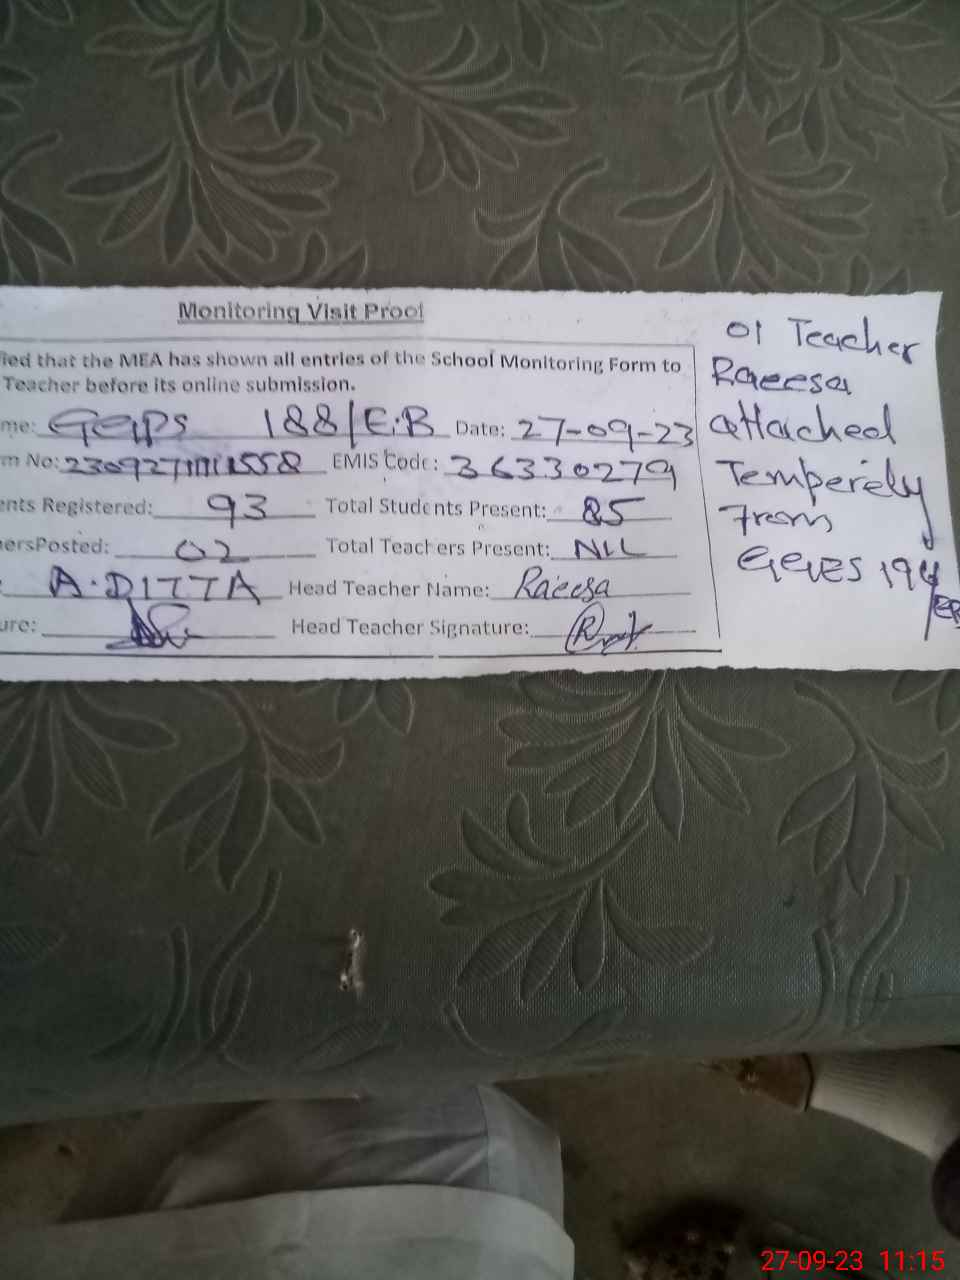 Monitoring Visit Proof
fied that the MEA has shown all entries of the School Monitoring Form to
Teacher before its online submission.
me: GGPS 188/E.B Date: 27-09-23
m No: EMIS Code: 36330279
ents Registered: 93 Total Students Present: 85
ersPosted: 02 Total Teachers Present: NIL
A.DITTA Head Teacher Name: Raeesa
ure: Head Teacher Signature:
01 Teacher
Raeesa
attached
Temperely
From
GGES 194/EB
27-09-23 11:15